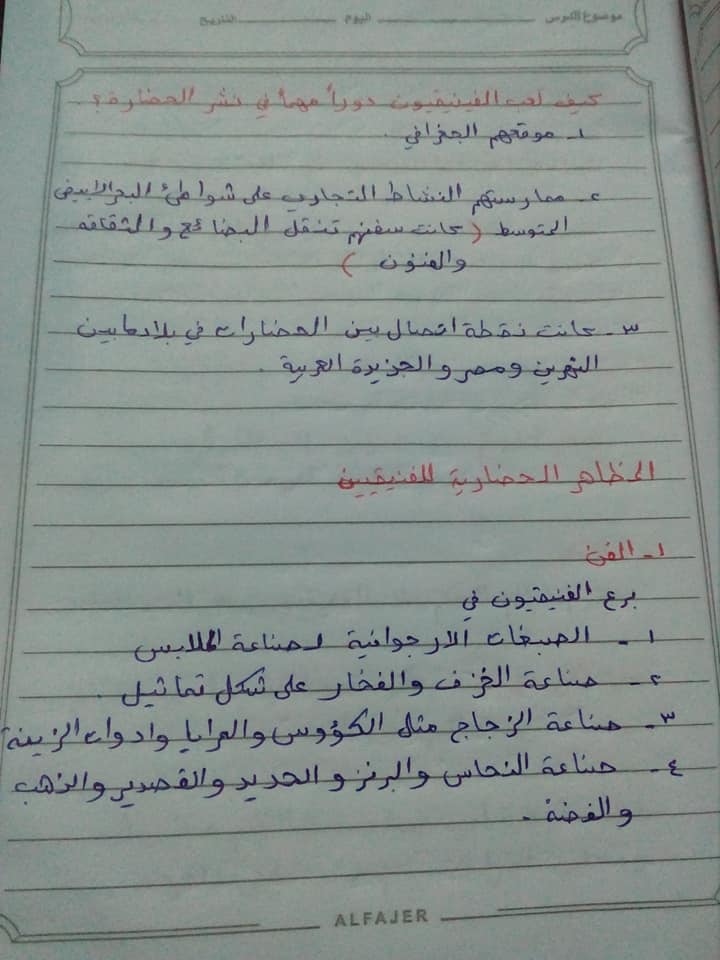 موضوع الدرس اليوم التاريخ
كيف لعب الفينيقيون دوراً مهماً في نشر الحضارة؟.
١- موقعهم الجغرافي.
٢- ممارستهم النشاط التجاري على شواطئ البحر الابيض
المتوسط ( كانت سفنهم تنقل البضائع والثقافه
والفنون )
٣- كانت نقطة اتصال بين الحضارات في بلاد ما بين
النهرين ومصر والجزيرة العربية .
المظاهر الحضارية للفنيقيين
١- الفن
برع الفنيقيون في
١- الصبغات الارجوانية لصناعة الملابس
٢- صناعة الخزف والفخار على شكل تماثيل .
٣- صناعة الزجاج مثل الكؤوس والمرايا وادوات الزينة
٤- صناعة النحاس والبرنز والحديد والقصدير والذهب
والفضة .
ALFAJER